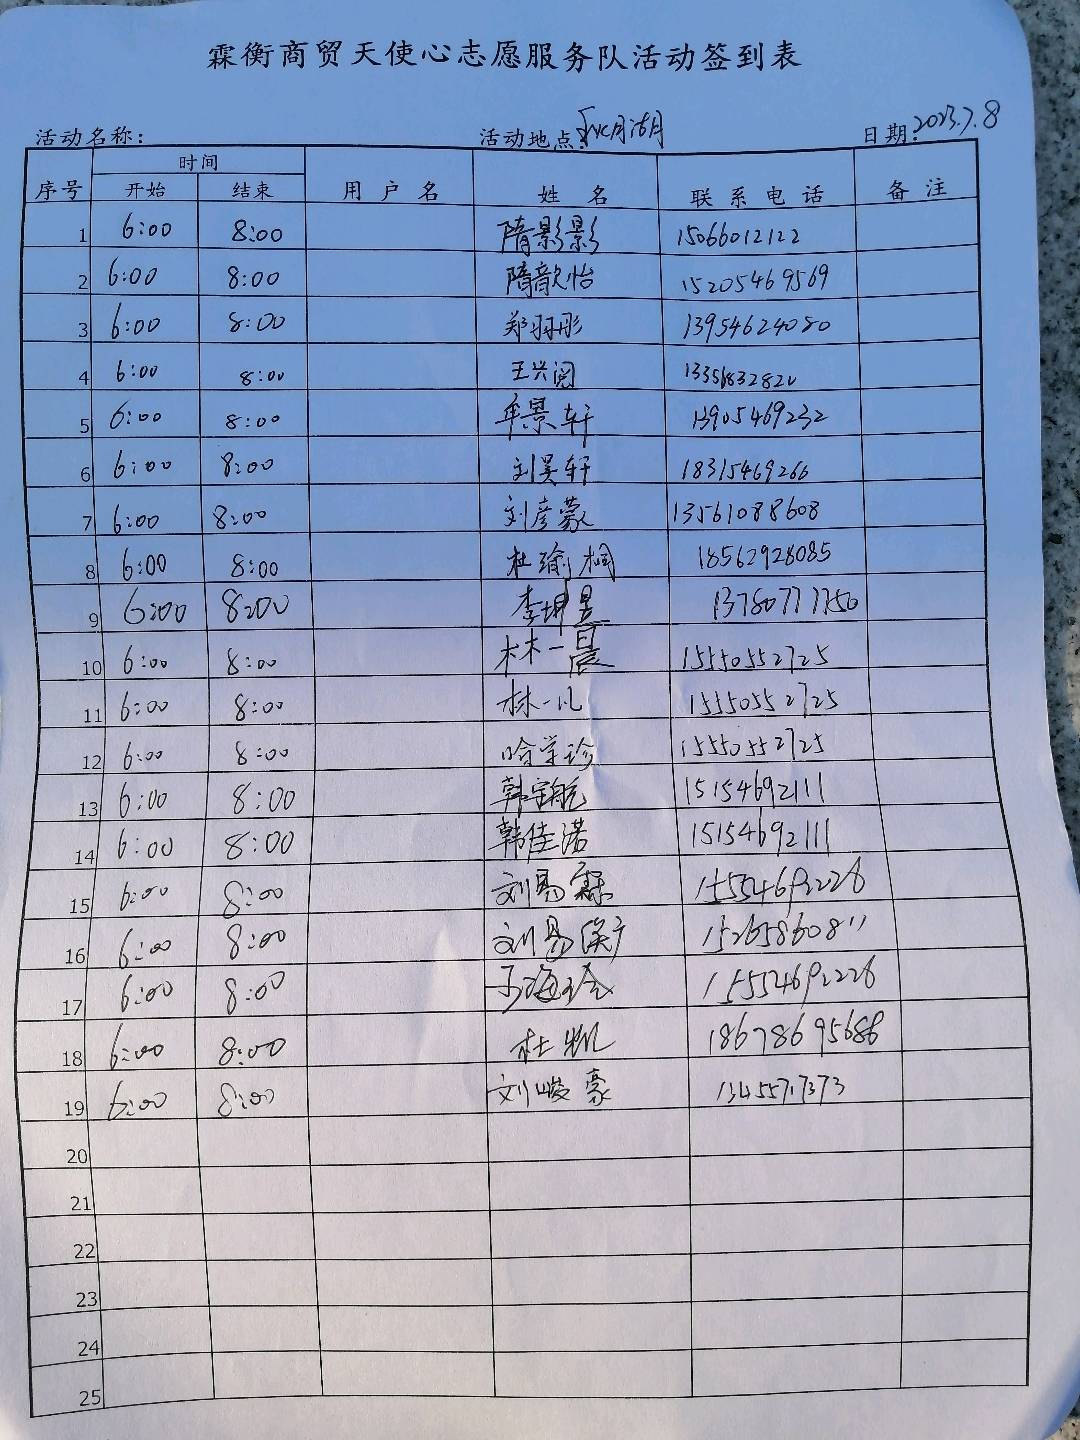 霖衡商贸天使心志愿服务队活动签到表
活动名称： 活动地点：月湖 日期：2023.7.8
序号 时间 用户名 姓名 联系电话 备注
开始 结束
1 6:00 8:00 隋影影 15066012122
2 6:00 8:00 隋歆怡 15205469569
3 6:00 8:00 郑羽彤 13954624080
4 6:00 8:00 王兴阅 13356832820
5 6:00 8:00 牟景轩 13905469232
6 6:00 8:00 刘昊轩 18315469266
7 6:00 8:00 刘彦蒙 13561088608
8 6:00 8:00 杜瑜桐 18562928085
9 6:00 8:00 李坤昱 13780777750
10 6:00 8:00 林一晨 15550552725
11 6:00 8:00 林一凡 15550552725
12 6:00 8:00 哈学珍 15550552725
13 6:00 8:00 韩宇航 15154692111
14 6:00 8:00 韩佳诺 15154692111
15 6:00 8:00 刘易霖 15554692226
16 6:00 8:00 刘易 15265860811
17 6:00 8:00 于海玲 15554692226
18 6:00 8:00 杜凯 18678695686
19 6:00 8:00 刘峻豪 13455717373
20
21
22
23
24
25